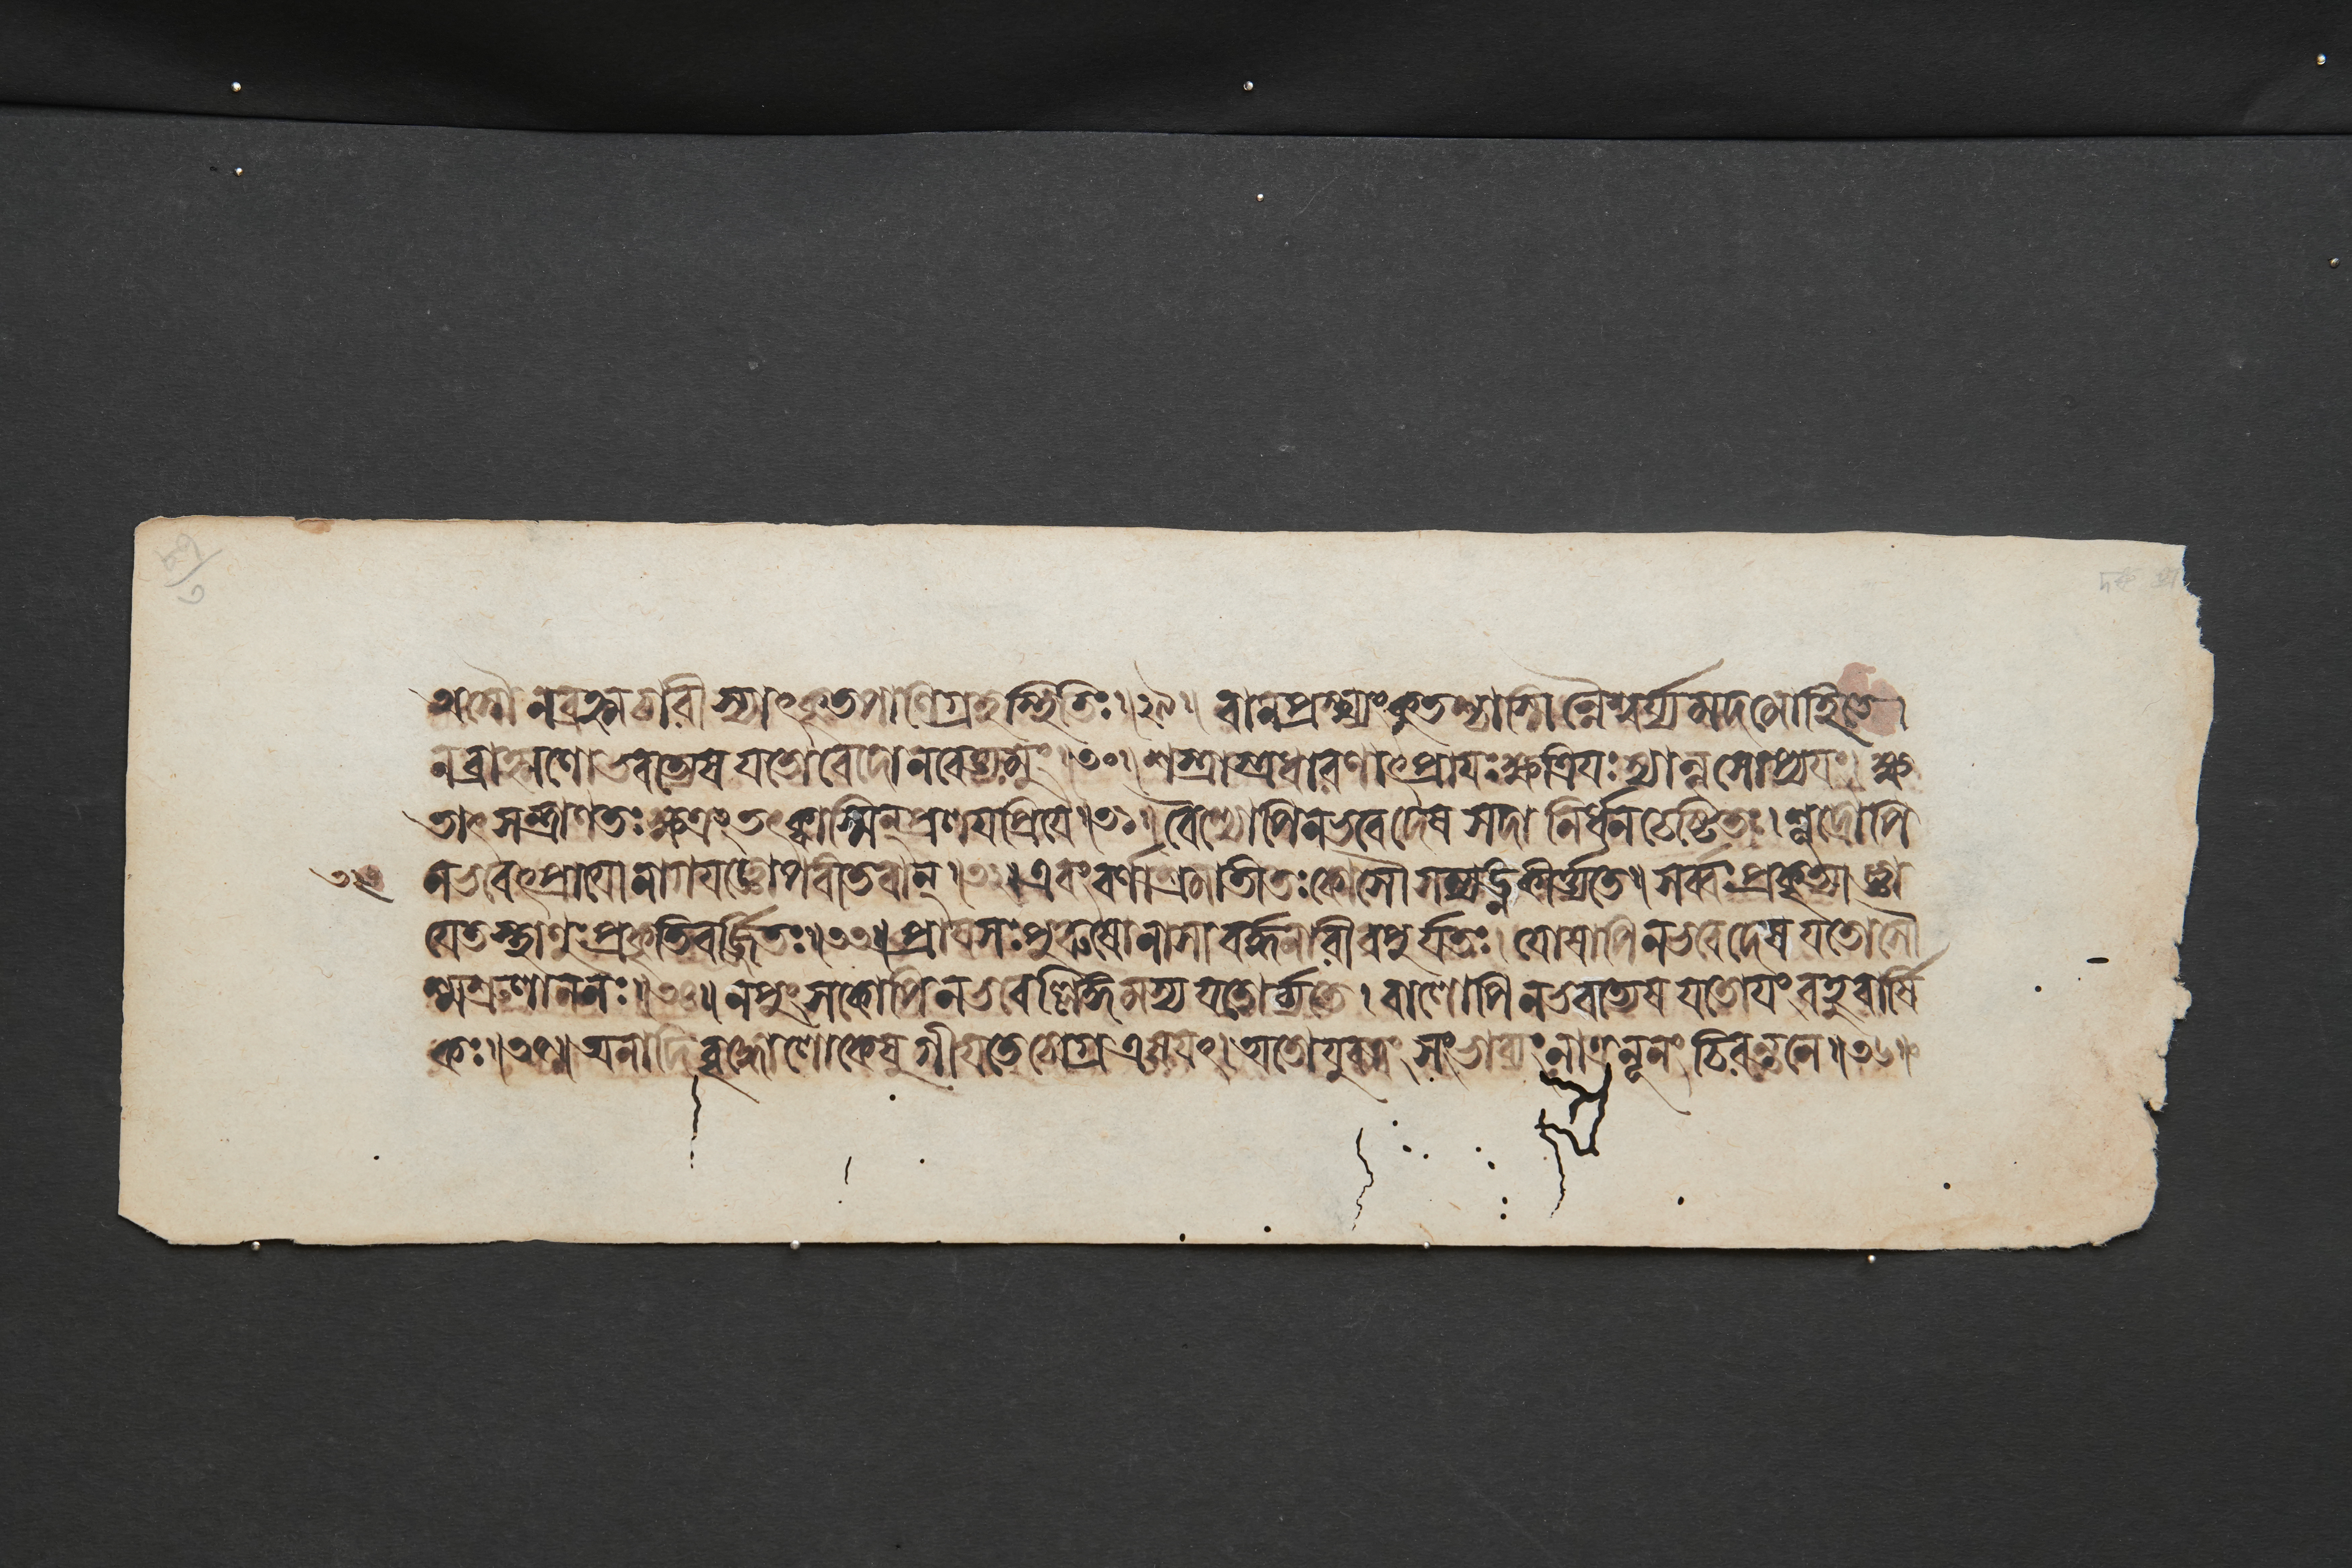 অসৌ ন ব্রহ্মচারী স্যাৎকৃতপাণিগ্রহস্থিতিঃ।২৯। বানপ্রস্থ্যং কুতশ্চাস্মিন্নৈশ্বর্য্যমদমোহিতে।
ন ব্রাহ্মণো ভবত্যেষ যতো বেদো ন বেত্ত্যমুং।৩০। শস্ত্রাস্ত্রধারণাৎপ্রায়ঃ ক্ষত্রিয়ঃ স্যান্ন সোপ্যয়ং। ক্ষ
তাৎসন্ত্রাণতঃ ক্ষত্রং তৎক্বাস্মিন্ প্রলয়প্রিয়ে।৩১। বৈশ্যোপি ন ভবেদেষ সদা নির্ধনচেষ্টিতঃ। শূদ্রোপি
ন ভবেৎপ্রায়ো নাগযজ্ঞোপবীতবান্।৩২। এবং বর্ণাশ্রমাতীতঃ কোসৌ সম্যঙ্ন কীর্ত্যতে॥ সর্ব্বঃ প্রকৃত্যা জ্ঞা
যেত স্থাণুঃ প্রকৃতিবর্জ্জিতঃ॥৩৩॥ প্রায়সঃ পুরুষো নাসাবর্দ্ধনারীবপুর্যতঃ। যোষাপি ন ভবেদেষ যতোসৌ
শ্মশ্রুলাননঃ॥৩৪॥ নপুংসকোপি ন ভবেল্লিঙ্গমস্য যতোর্চ্চ্যতে। বালোপি ন ভবত্যেষ যতোয়ং বহুবার্ষি
কঃ।৩৫॥ অনাদিবৃদ্ধো লোকেষু গীয়তে চোগ্র এষ যৎ। অতো যুবত্বং সংভাব্যং নাত্র নূনং চিরন্তনে॥৩৬॥